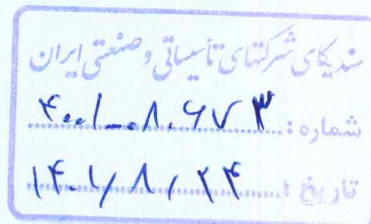 سندیکای شرکتهای تأسیساتی و صنعتی ایران
شماره: ۴۰۰۱-۰۸۰۶۷۳
تاریخ: ۱۴۰۱/۸/۲۴